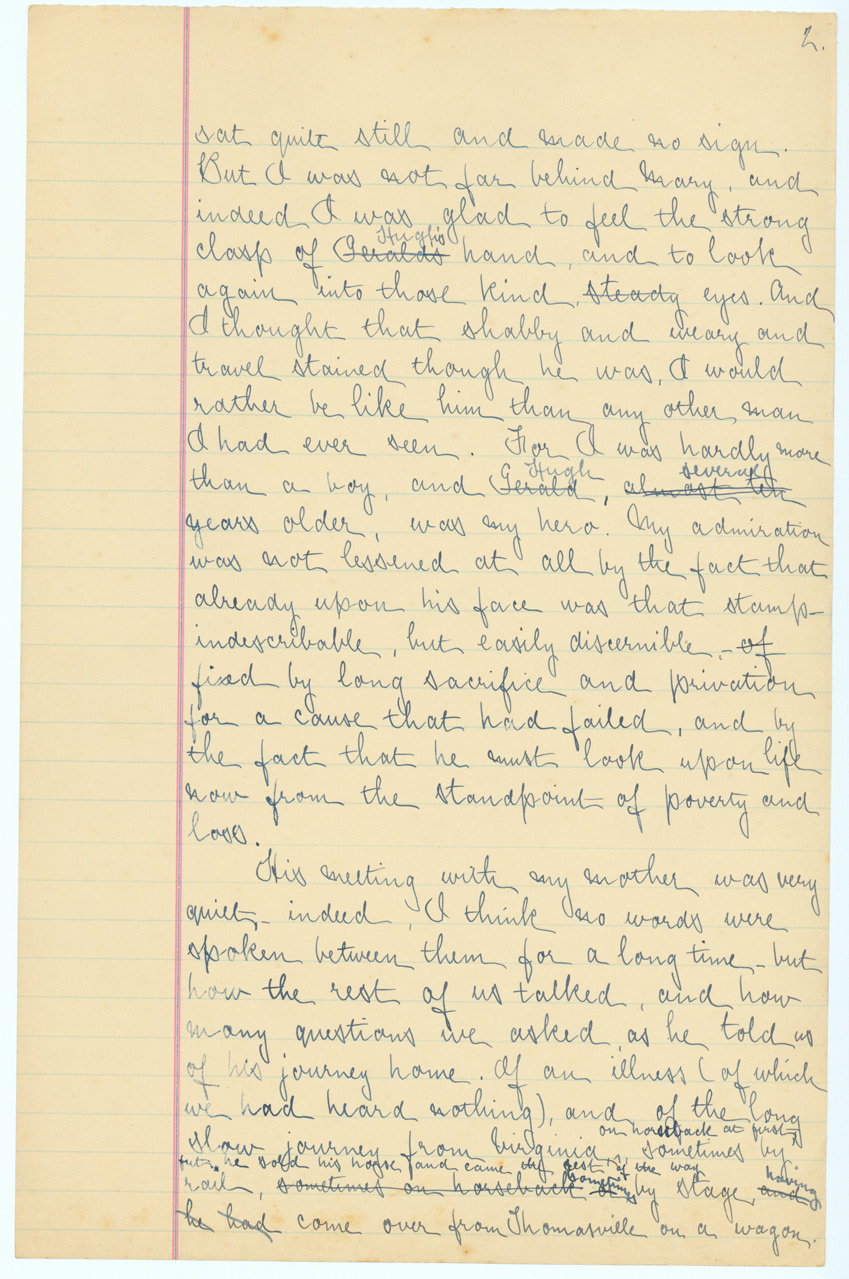 2.
sat quite still and made no sign.
But I was not far behind Mary, and
indeed I was glad to feel the strong
Hugh's
clasp of Geralds hand, and to look
again into those kind, steady eyes. And
I thought that shabby and weary and
travel stained though he was, I would
rather be like him than any other man
I had ever seen. For I was hardly more
Hugh several
than a boy, and Gerald, almost ten
years older, was my hero. My admiration
was not lessened at all by the fact that
already upon his face was that stamp-
indescribable, but easily discernible,- of
fixed by long sacrifice and privation
for a cause that had failed, and by
the fact that he must look upon life
now from the standpoint of poverty and
loss.
His meeting with my mother was very
quiet,- indeed, I think no words were
spoken between them for a long time - but
how the rest of us talked, and how
many questions we asked, as he told us
of his journey home. Of an illness (of which
we had heard nothing), and of the long
on horseback at first,
slow journey from Virginia, sometimes by
but he sold his horse and came the rest of the way
sometimes having
rail, sometimes on horseback or by stage, and
he had come over from Thomasville on a wagon.